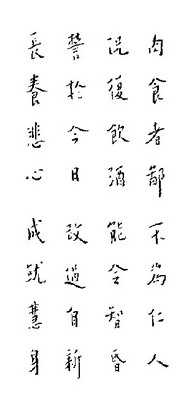 肉食者鄙不為仁人
況復飲酒能令智昏
誓於今日改過自新
長養悲心成就慧身